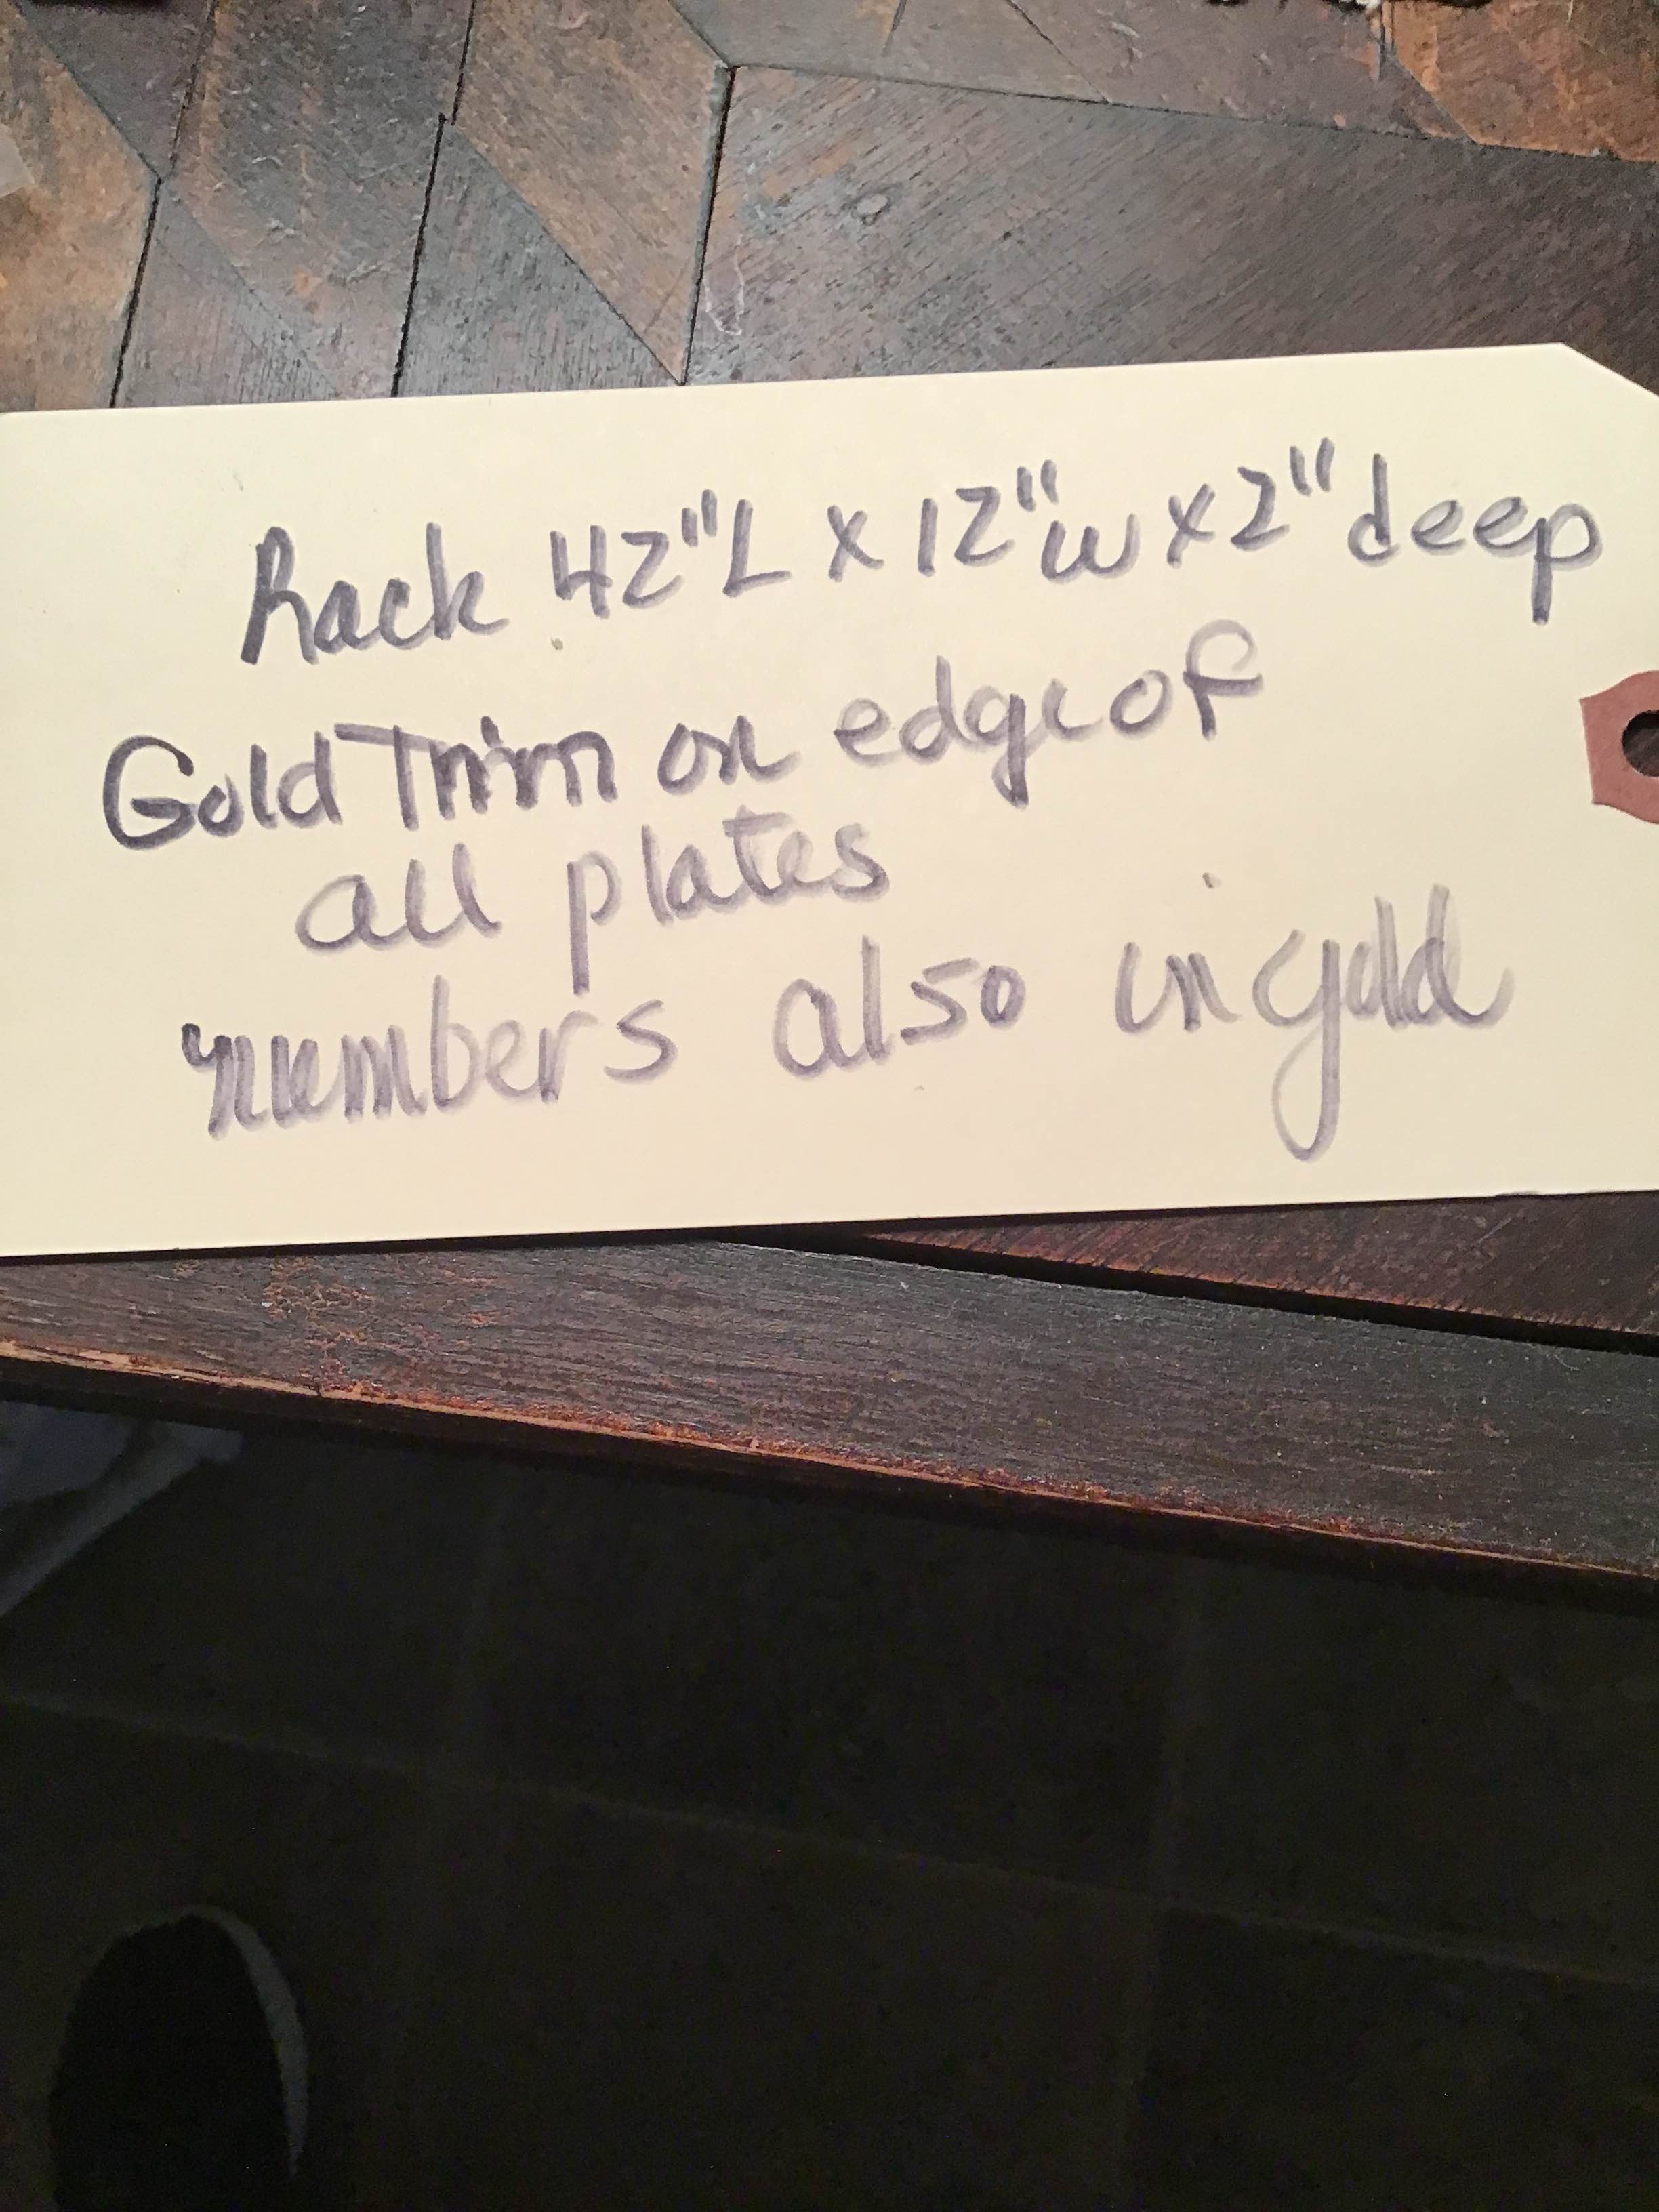 Rack 42"L x 12"w x 2" deep
Gold Trim on edge of
all plates
numbers also in gold